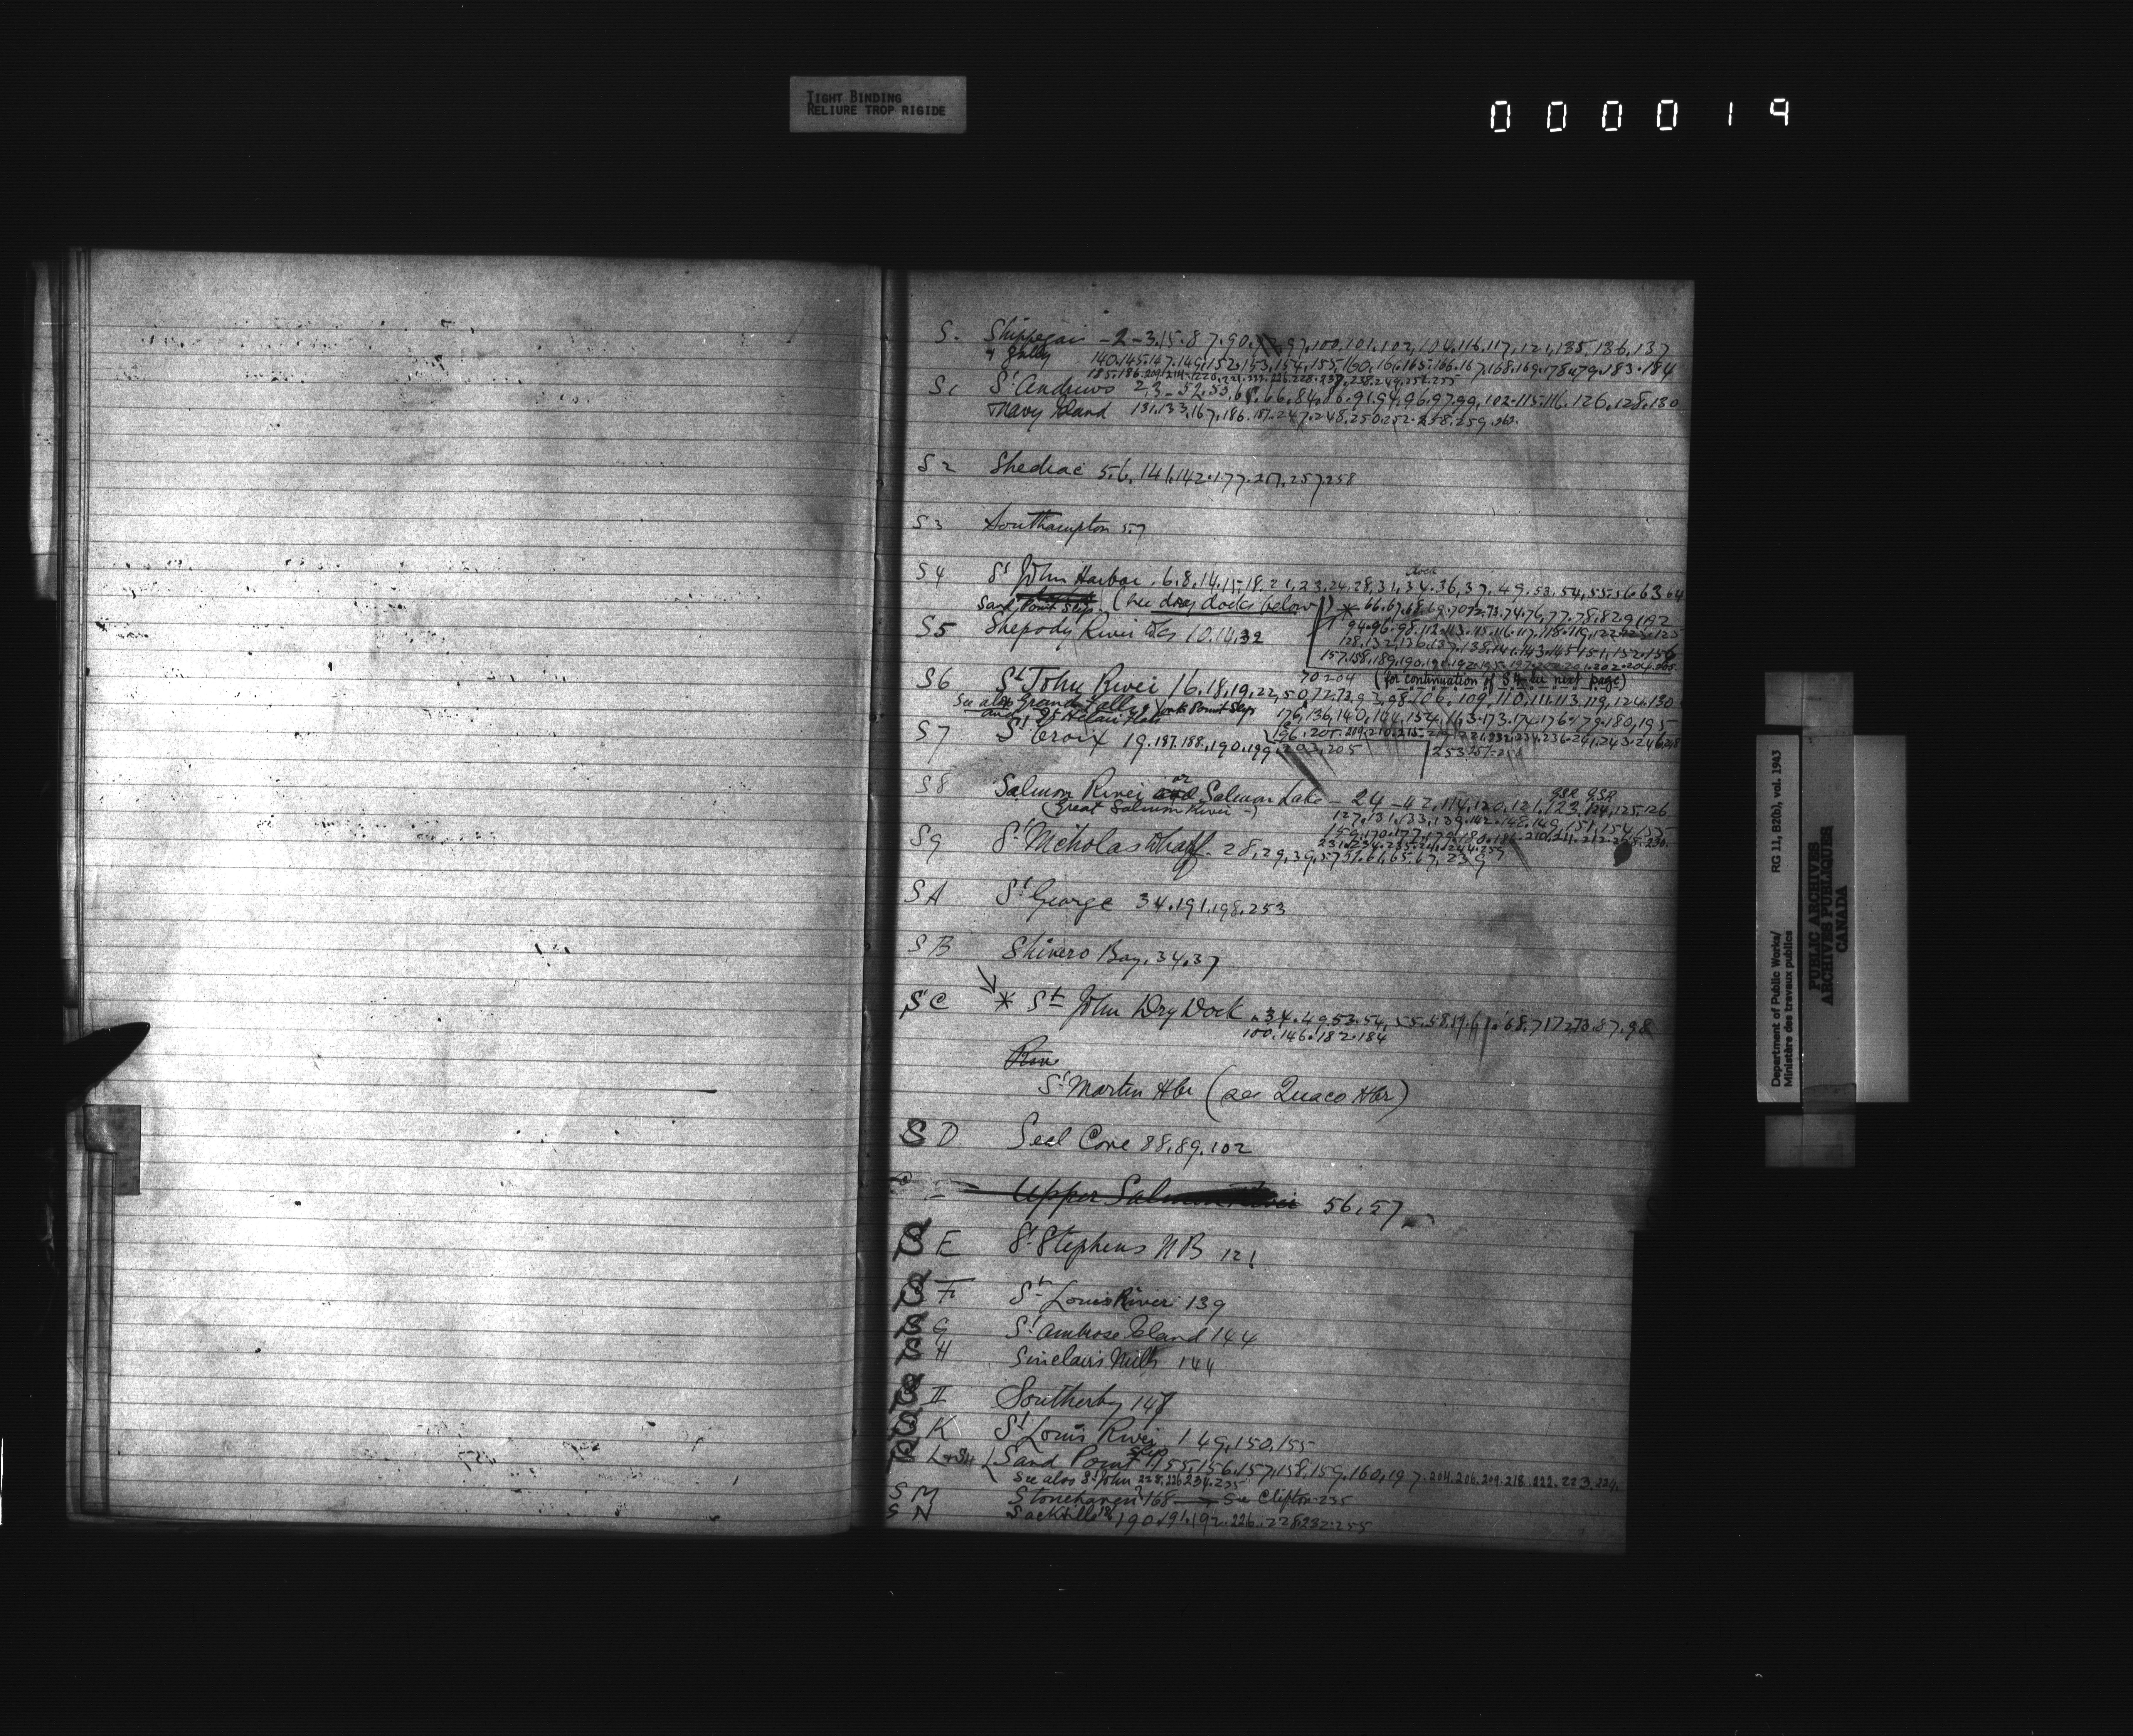 TIGHT BINDING
RELIURE TROP RIGIDE
000019
S. Shippegan - 2 - 3.15.87.90. 97.100.101.102.104.116.117.121.135.136.137
& Gully 140.145.147.149.152.153.154.155.160.161.165.166.167.168.169.178.179.183.184
S1 St Andrews 23-52.53. 66.84.86.91.94.96.97.99.102.115.116.126.128.130
Navy Island 131.133.167.186.187.247.248.250.252.258.259.
S2 Shediac 5.6.141.142.177.217.257.258
S3 Southampton 57
S4 St John Harbor. 6.8.14.15.18.21.23.24.28.31.34.36.37.49.53.54.55.56.63.64
Sand Point Slips. (See dry docks below) * 66.67.68.69.70.72.73.74.76.77.78.82.91.92
94.96.98.112.113.115.116.117.118.119.122.123.125
S5 Shepody River &c 10.14.32
128.132.136.137.138.141.143.145.151.152.156
157.158.189.190.191.192.195.197.200.201.202.204.205
70 204 (for continuation of S4 see next page)
S6 St John River 16.18.19.22.50.72.92.98.106.109.110.111.113.119.124.130
See also Grand Falls & York Point Slip
and St Helair Flats 176.136.140.144.154.163.173.174.176.179.180.195
S7 St Croix 19.187.188.190.199.202.205
253.257.258
S8 Salmon River or Salmon Lake - 24 - 42.114.120.121.123.124.125.126
GSR GSR
(Great Salmon River -) 127.131.133.139.142.148.149.151.154.155
159.170.177.179.180.186.210.211.212.225.230.
231.234.235.241.244.259
S9 St Nicholas Wharf. 28.29.39.57.51.61.65.67.239
SA St George 34.191.198.253
SB Shivero Bay. 34.37
SC * St John Dry Dock .34.49.53.54.55.58.59.61.68.71.72.73.87.98
100.146.182.184
St Martin Hbr (see Quaco Hbr)
SD Seal Cove 88.89.102
Upper Salmon River 56.57
SE St Stephens NB 121
SF St Louis River 139
SG St Ambrose Island 144
SH Sinclairs Mills 144
SI Southerby 148
SK St Louis River 149.150.155
SL Sand Point Slip 155.156.157.158.159.160.197.204.206.209.218.222.223.224.
See also St John 228.226.234.235
SM Stonehaven 168 → See Clifton 235
SN Sackville 190.191.192.226.228.232.255
Department of Public Works/ RG 11, B2(b), vol. 1943
Ministère des travaux publics
PUBLIC ARCHIVES
ARCHIVES PUBLIQUES
CANADA